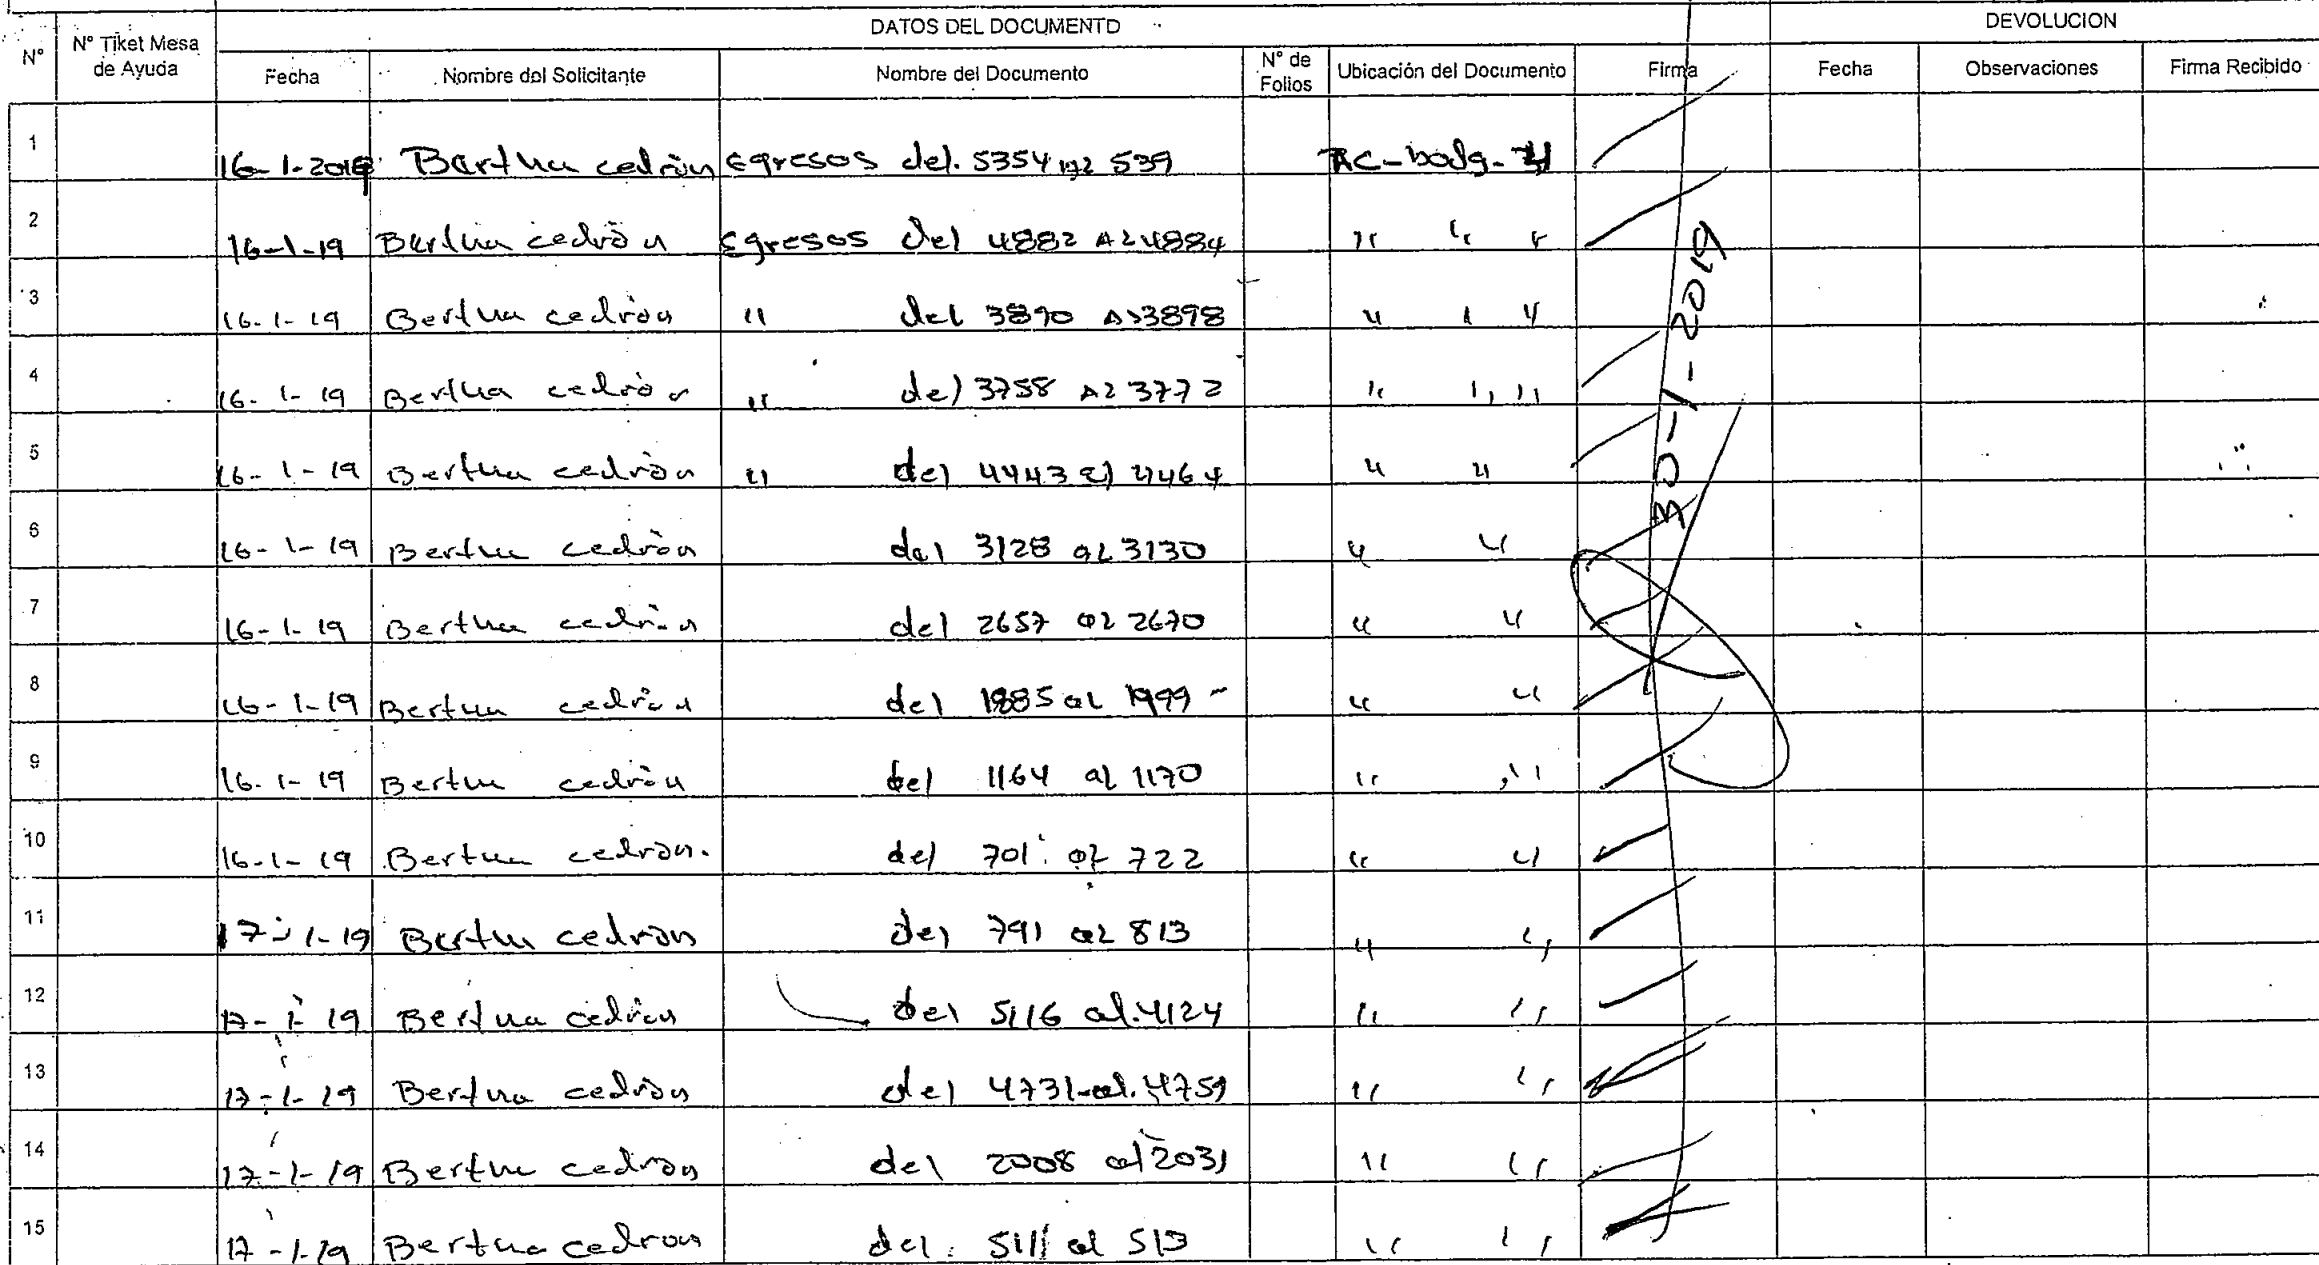 DATOS DEL DOCUMENTO DEVOLUCION
N° N° Tiket Mesa de Ayuda Fecha Nombre del Solicitante Nombre del Documento N° de Folios Ubicación del Documento Firma Fecha Observaciones Firma Recibido
1 16-1-2019 Bertha cedrón Egresos del. 5354 al 539 AC-bodg-
2 16-1-19 Bertha cedrón Egresos del 4882 AL 4884 " " "
3 16-1-19 Bertha cedrón " del 3890 AL 3898 " " "
4 16-1-19 Bertha cedrón " del 3758 AL 3772 " " "
5 16-1-19 Bertha cedrón " del 4443 al 4464 " "
6 16-1-19 Bertha cedrón del 3128 al 3130 " "
7 16-1-19 Bertha cedrón del 2657 al 2670 " "
8 16-1-19 Bertha cedrón del 1985 al 1999 - " "
9 16-1-19 Bertha cedrón del 1164 al 1170 " "
10 16-1-19 Bertha cedrón. del 701 al 722 " "
11 17-1-19 Bertha cedrón del 791 al 813 " "
12 17-1-19 Bertha cedrón del 5116 al. 4124 " "
13 17-1-19 Bertha cedrón del 4731 al. 4759 " "
14 17-1-19 Bertha cedrón del 2008 al 2031 " "
15 17-1-19 Bertha cedron del 511 al 513 " "
30-1-2019